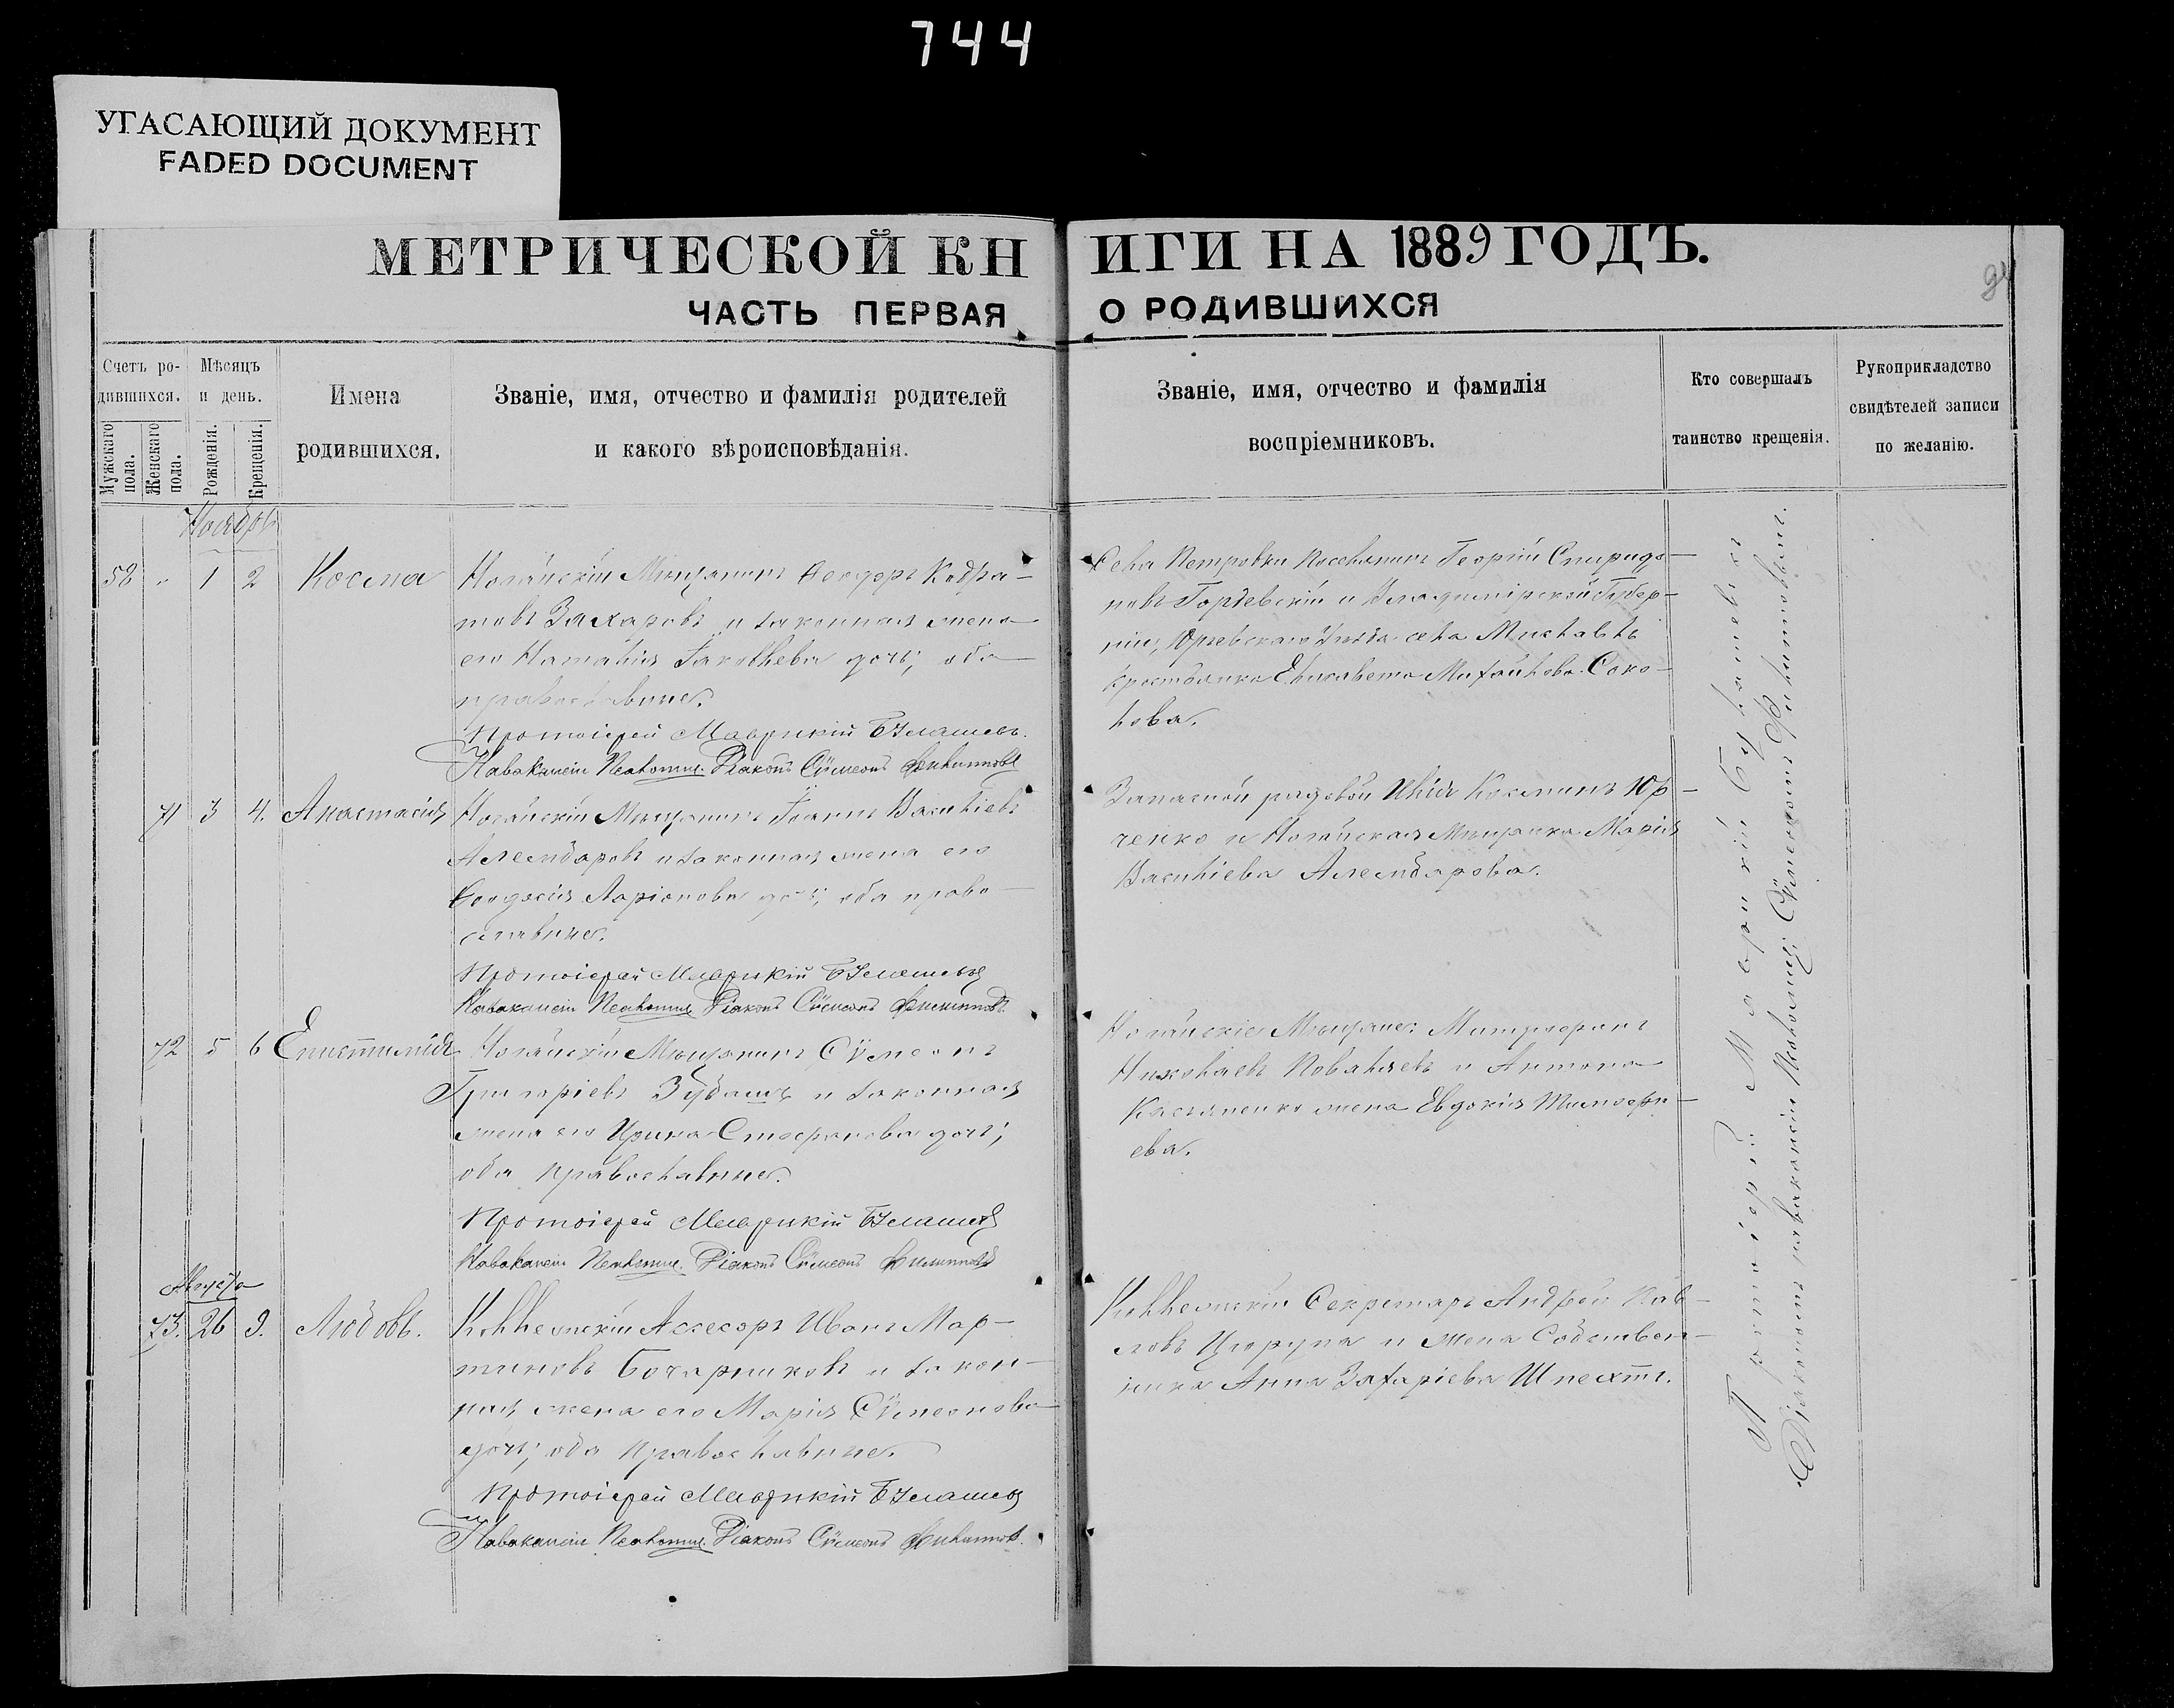 744
УГАСАЮЩИЙ ДОКУМЕНТ
FADED DOCUMENT
МЕТРИЧЕСКОЙ КНИГИ НА 1889 ГОДЪ.
ЧАСТЬ ПЕРВАЯ О РОДИВШИХСЯ
Счетъ ро-
дившихся.
Мужскаго пола.
Женскаго пола.
Мѣсяцъ
и день.
Рожденія.
Крещенія.
Имена
родившихся.
Званіе, имя, отчество и фамилія родителей
и какого вѣроисповѣданія.
Званіе, имя, отчество и фамилія
воспріемниковъ.
Кто совершалъ
таинство крещенія.
Рукоприкладство
свидѣтелей записи
по желанію.
Ноябрь
58 " 1 2 Косма
Ногайскій Мѣщанинъ Ѳеодоръ Кодра-
товъ Захаровъ и законная жена
его Наталія Іаковлева дочь; оба
православные.
Протоіерей Маврикій
Навакансіи Псаломщ. Діаконъ Сѵмеонъ Филипповъ
Села Петровки Поселянинъ Георгій Спиридо-
новъ Гордѣевскій и Владимірской Губер-
ніи, Юрьевскаго Уѣзда села
крестьянка Елисавета Михайлова Соко-
лова.
71 3 4. Анастасія
Ногайскій Мѣщанинъ Іоаннъ Васильевъ
Алемдаровъ и законная жена его
Ѳеодосія Ларіонова дочь; оба право-
славные.
Протоіерей Маврикій
Навакансіи Псаломщ. Діаконъ Сѵмеонъ Филипповъ
Запасной рядовой Илія Косминъ Юр-
ченко и Ногайская Мѣщанка Марія
Васильева Алемдарова.
72 5 6 Епистимія
Ногайскій Мѣщанинъ Сѵмеонъ
Григоріевъ и законная
жена его Ирина Стефанова дочь;
оба православные.
Протоіерей Маврикій
Навакансіи Псаломщ. Діаконъ Сѵмеонъ Филипповъ
Ногайскіе Мѣщане: Митрофанъ
Николаевъ Поваляевъ и Антона
Касьяненко жена Евдокія Тимофе-
ева.
Августа
73. 26 9. Любовь.
Коллежскій Ассесоръ Иванъ Мар-
тиновъ Бочарниковъ и закон-
ная жена его Марія Сѵмеонова
дочь; оба православные.
Протоіерей Маврикій
Навакансіи Псаломщ. Діаконъ Сѵмеонъ Филипповъ.
Коллежскій Секретарь Андрей Пав-
ловъ Цюрупа и жена Собствен-
ника Анна Захаріева
Протоіерей Маврикій
Діакономъ навакансіи Псаломщ. Сѵмеономъ Филипповымъ.